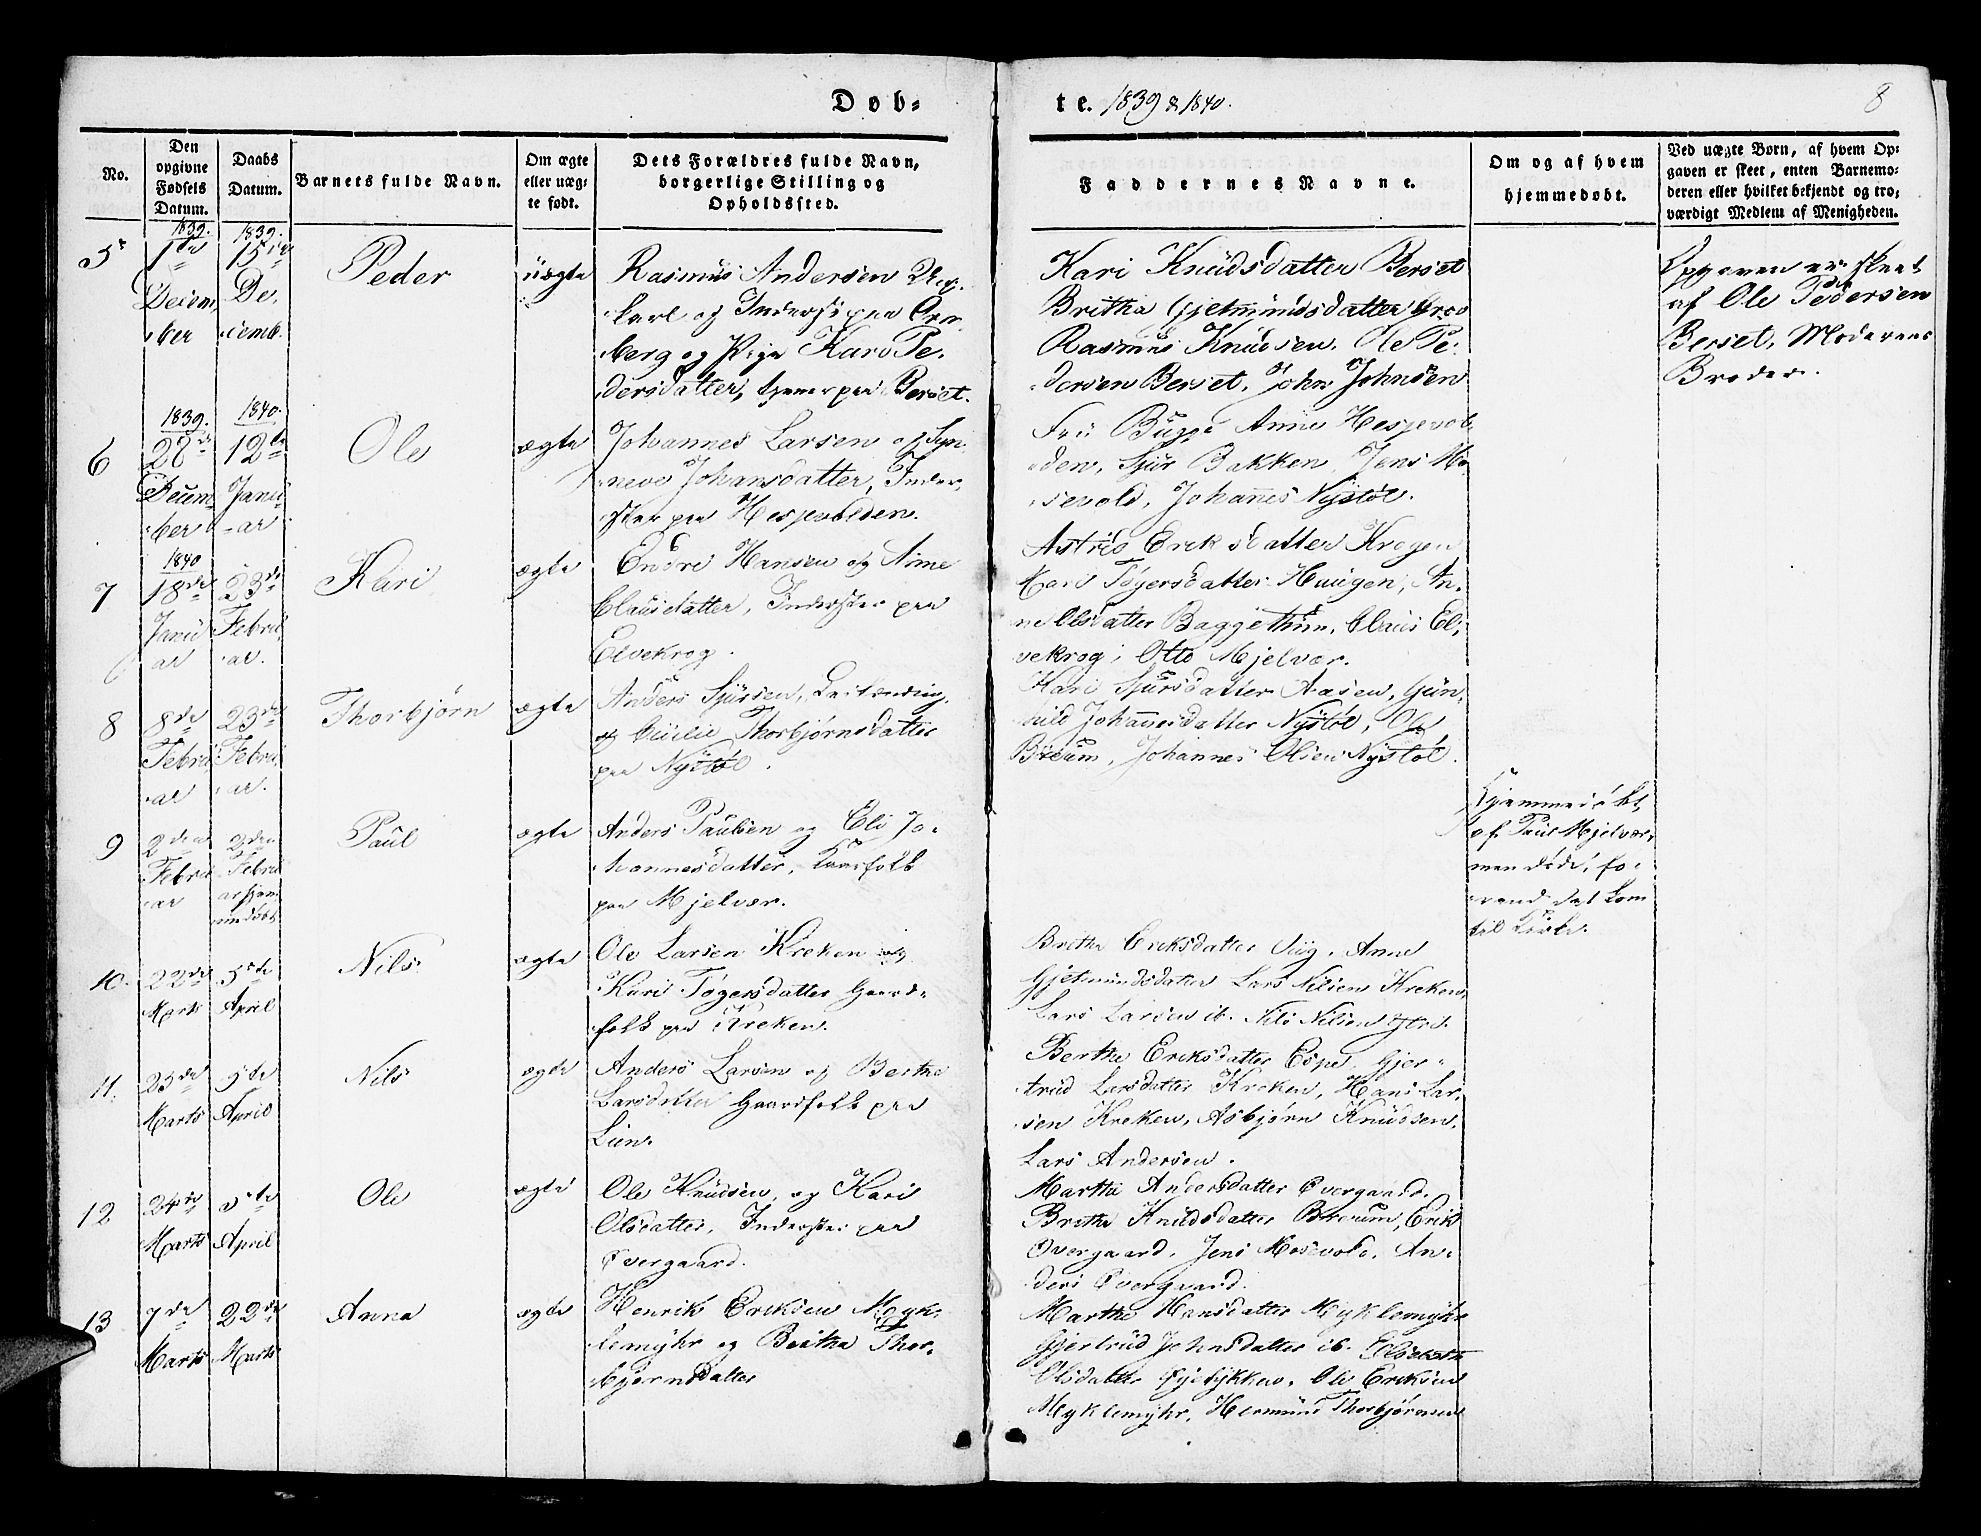 Døb-
te. 1839 & 1840.
8
No.
Den opgivne Fødsels Datum.
Daabs Datum.
Barnets fulde Navn.
Om ægte eller uæg-
te født.
Dets Forældres fulde Navn,
borgerlige Stilling og
Opholdssted.
Faddernes Navne.
Om og af hvem
hjemmedøbt.
Ved uægte Børn, af hvem Op-
gaven er skeet, enten Barnemo-
deren eller hvilket bekjendt og tro-
værdigt Medlem af Menigheden.
5
1839.
1ste
Decem-
ber
1839.
15de
De-
cemb.
Peder
uægte
Rasmus Andersen
karl og Inderst paa
berg og Pige Kari Pe-
dersdatter, tjener paa Berset.
Kari Knudsdatter Berset
Britha Gjelmundsdatter Groo
Rasmus Knudsen, Ole Pe-
dersen Berset, John Johnsen
Opgaven er skeet
af Ole Pedersen
Berset, Moderens
Broder.
6
1839.
27de
Decem-
ber
1840.
12te
Janu-
ar
Ole
ægte
Johannes Larsen og Syn-
neve Johansdatter, Inder-
ster paa Hesjevolden.
Fru Bugge Anne Hesjevol-
den, Sjur Bakken, Jens Mo-
sevold, Johannes Nystøl.
7
1840
18de
Janu-
ar
23de
Febru-
ar.
Kari
ægte
Endre Hansen og Anne
Clausdatter, Inderster paa
Elvekrog.
Astrid Eriksdatter Krogen
Kari Tøgersdatter Haugen, An-
ne Olsdatter Baggethun, Claus El-
vekrog, Otto Mjelvær.
8
8de
Febru-
ar
23de
Febru-
ar.
Thorbjørn
ægte
Anders Sjursen,
og Cicilie Thorbjørnsdatter
paa Nystøl.
Kari Sjursdatter Aasen, Gun-
hild Johannesdatter Nystøl, Ole
Breum, Johannes Olsen Nystøl.
9
2den
Febru-
ar
2den
Febru-
ar hjem-
medøbt
Paul
ægte
Anders Paulsen og Eli Jo-
hannesdatter, Huusfolk
paa Mjelvær.
Hjemmedøbt
af Paul Mjelvær,
men døde, fo-
rend det kom
til Kirke.
10.
22de
Marts
5te
April
Nils
ægte
Ole Larsen Kreken og
Kari Tøgersdatter Gaard-
folk paa Kreken.
Brithe Eriksdatter Viig, Anne
Gjelmundsdatter Lars Nilsen Kreken,
Lars Larsen ib. Nils Nilsen
11.
23de
Marts
5te
April
Nils
ægte
Anders Larsen og Berthe
Larsdatter Gaardfolk paa
Lien.
Berthe Eriksdatter Espe, Gjer-
trud Larsdatter Kreken, Hans Lar-
sen Kreken, Asbjørn Knudsen,
Lars Andersen.
12
24de
Marts
5te
April
Ole
ægte
Ole Knudsen, og Kari
Olsdatter, Inderster paa
Øvergaard.
Marthe Andersdatter Øvergaard.
Brithe Knudsdatter Breum, Erik
Øvergaard, Jens Mosevold, An-
ders Øvergaard.
13
7de
Marts
22de
Marts
Anna
ægte
Henrik Eriksen Myk-
lemyhr og Britha Thor-
bjørnsdatter
Marthe Hansdatter Myklemyhr
Gjertrud Johnsdatter ib. Elisabeth
Olsdatter Ole Eriksen
Myklemyhr, Hermund Thorbjørnsen